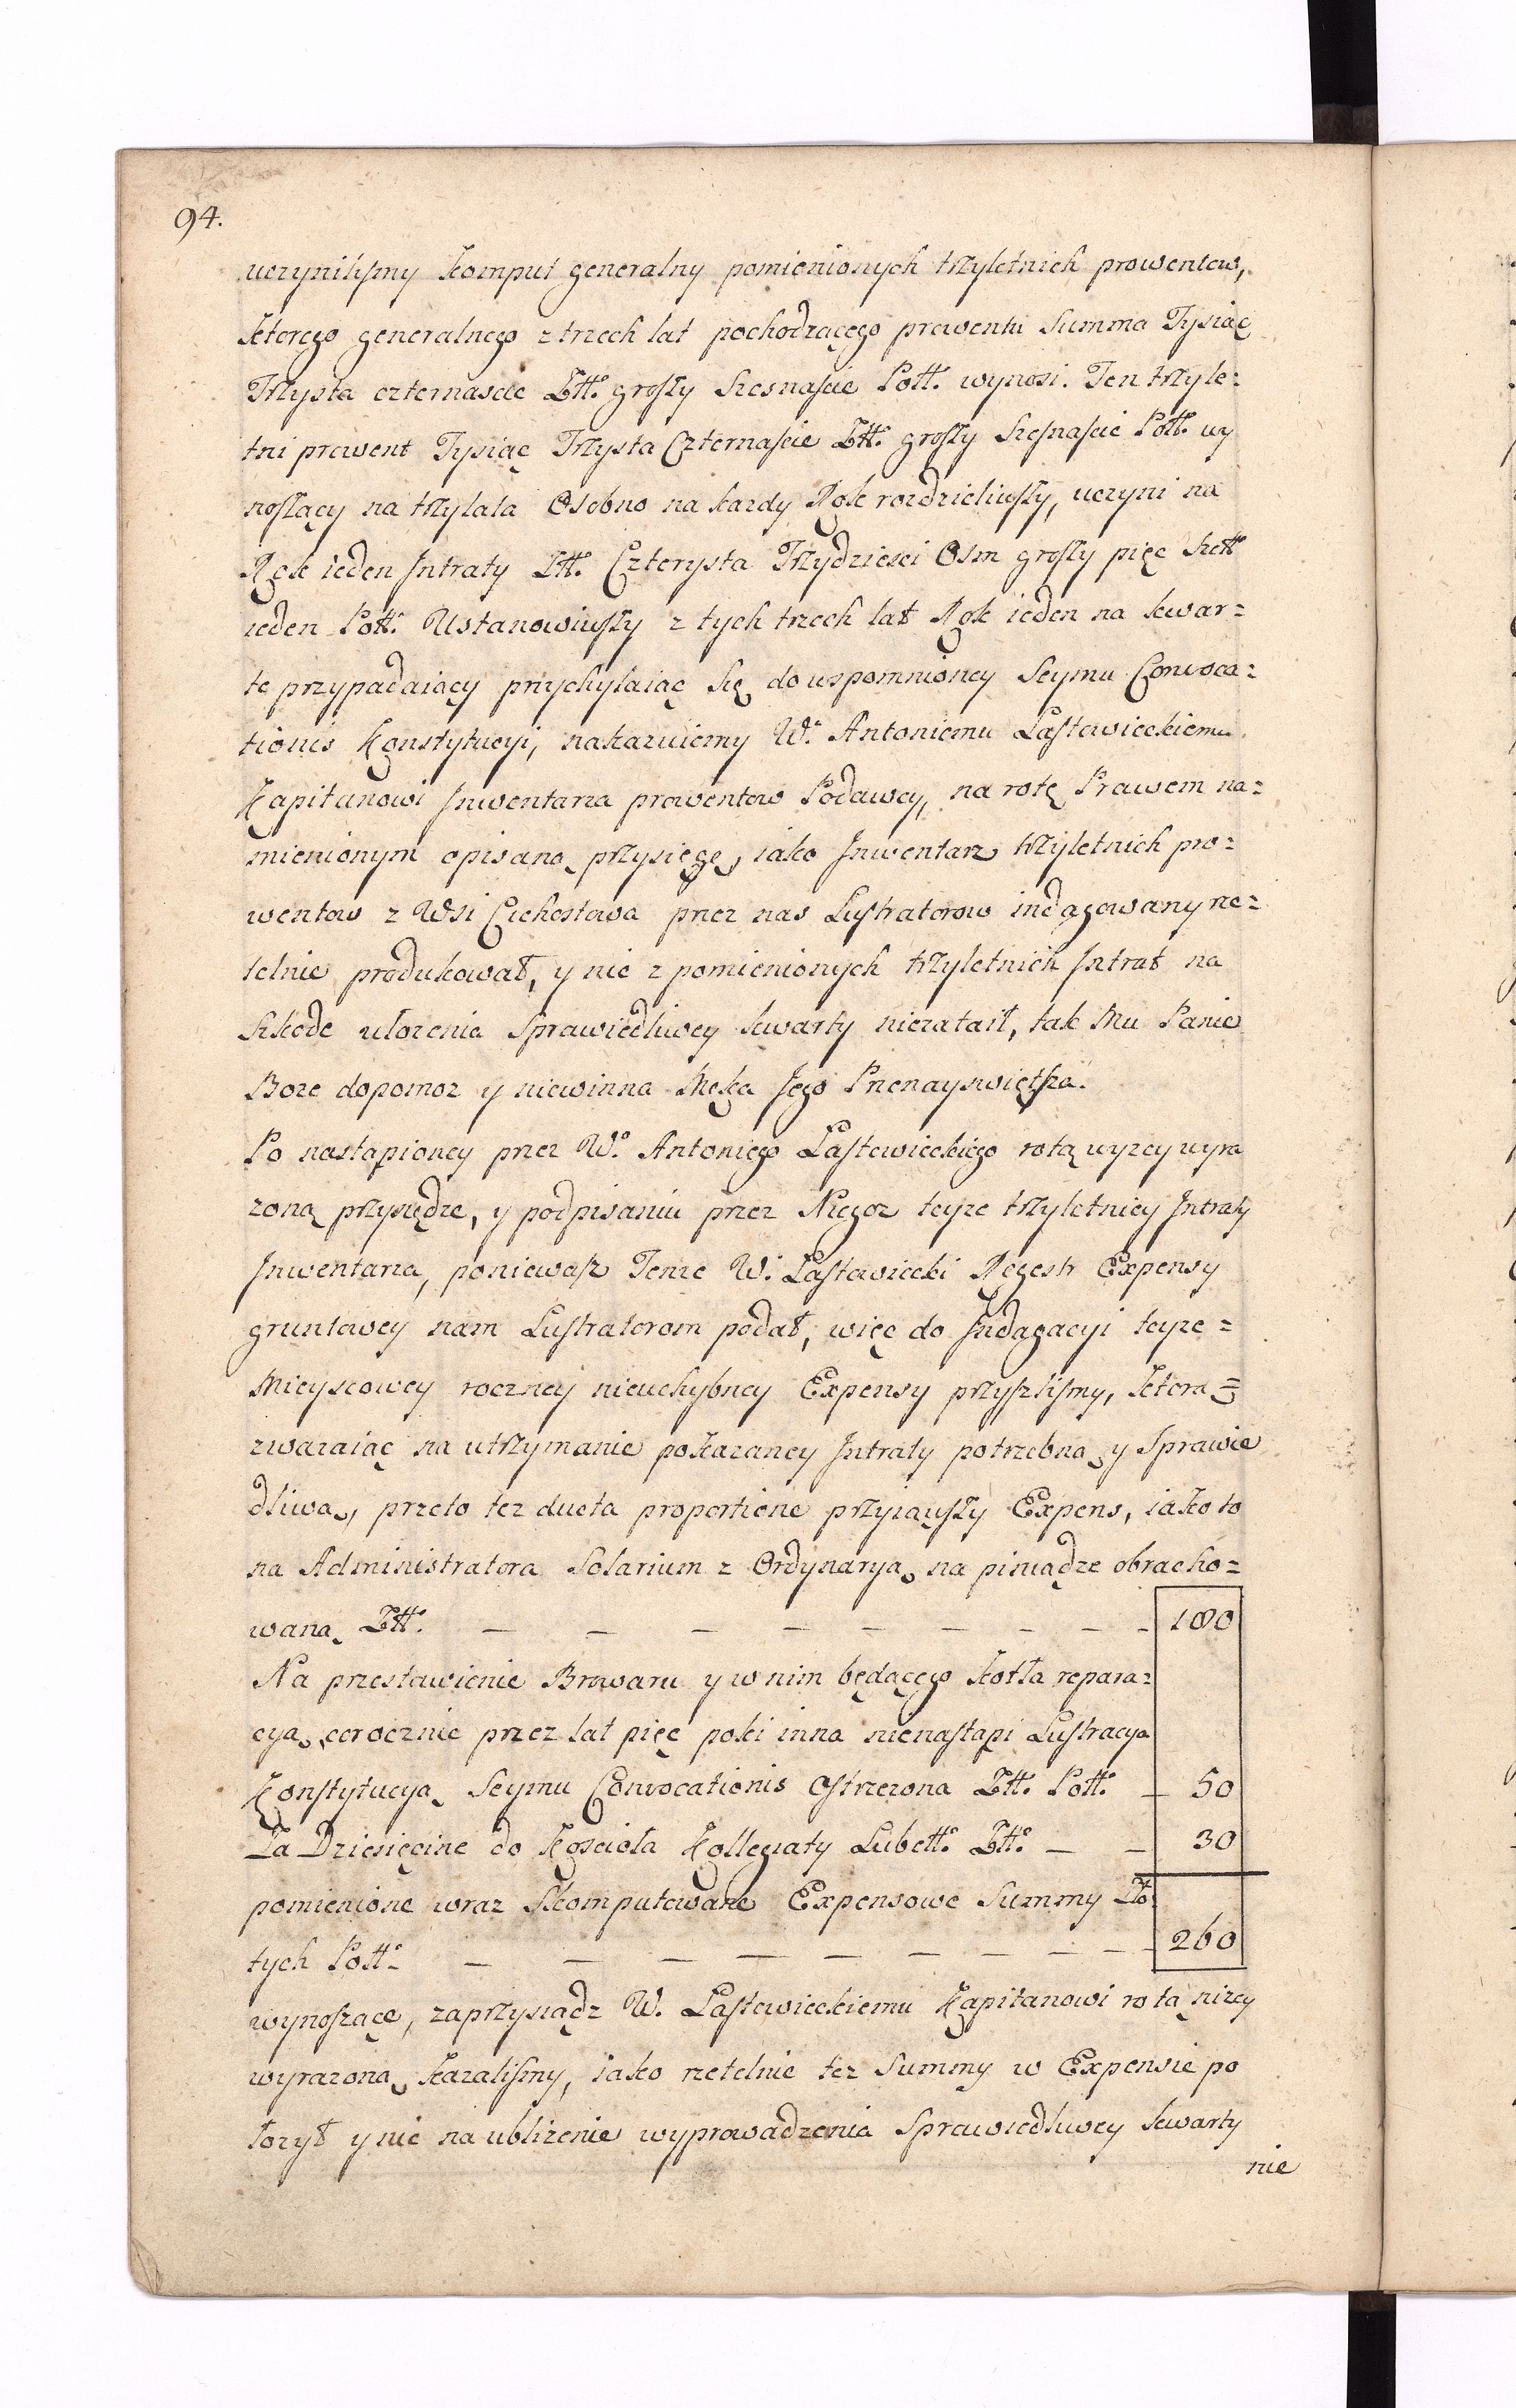 94.
uczyniliſmy Komput generalny pomienionych trzyletnich prowentow,
Ktorego generalnego z trzech lat pochodzącego prowentu Summa Tysiąc
Trzysta czternascie Złł. groſzy Szesnaſcie Poll. wynosi. Ten trzyle=
tni prowent Tysiąc Trzysta Czternaſcie Złł. groſzy Szeſnaſcie Poll. wy
noſzący na trzy lata Osobno na kazdy Rok rozdzieliwſzy, uczyni na
Rok ieden Jntraty Złł. Czterysta Trzydziesci Osm groſzy pięc Szell
ieden Poll. Ustanowiwſzy z tych trzech lat Rok ieden na kwar=
tę przypadaiący przychylaiąc Się do wspomnioney Seymu Convoca=
tionis Konstytucyi, nakazuiemy W. Antoniemu Laſtowieckiemu
Kapitanowi Jnwentarza prowentow Podawcy, na rotę Prawem na=
mienionym opisaną przysięgę, iako Jnwentarz trzyletnich pro=
wentow z Wsi Ciechostowa przez nas Luſtratorow indagowany rze=
telnie produkował, y nic z pomienionych trzyletnich Jntrat na
Szkodę ułozenia Sprawiedliwey kwarty niezataił, tak Mu Panie
Boze dopomoz y niewinna Męka Jego Przenayswiętſza.
Po nastąpioney przez W. Antoniego Laſtowieckiego rotą wyzey wyra
zoną przysiędze, y podpisaniu przez Niegoz teyze trzyletniey Jntraty
Jnwentarza, poniewaſz Tenze W. Laſtowiecki Regestr Expensy
gruntowey nam Luſtratorom podał, więc do Jndagacyi teyze=
Mieyscowey roczney nieuchybney Expensy przyſzliſmy, Ktorą=
zwazaiąc na utrzymanie pokazaney Jntraty potrzebną y Sprawie
dliwą, przeto tez ducta proportione przyiąwſzy Expens, iako to
na Administratora Solarium z Ordynaryą na piniądze obracho=
waną Złł. — — — — — — — — 180
Na przestawienie Browaru y w nim będącego kotła repara=
cyą corocznie przez lat pięc poki inna nienaſtąpi Luſtracya
Konſtytucyą Seymu Convocationis oſtrzezona Złł. Poll. — 50
Za Dziesięcinę do Kościoła Kollegiaty Lubell. Złł. — — 30
pomienione wraz Skomputowane Expensowe Summy Zło
tych Poll. — — — — — — — — 260
wynoſzące, zaprzysiądz W. Laſtowieckiemu Kapitanowi rotą nizey
wyrazoną kazaliſmy, iako rzetelnie tez Summy w Expensie po
łozył y nic na ubliżenie wyprowadzenia Sprawiedliwey kwarty
nie